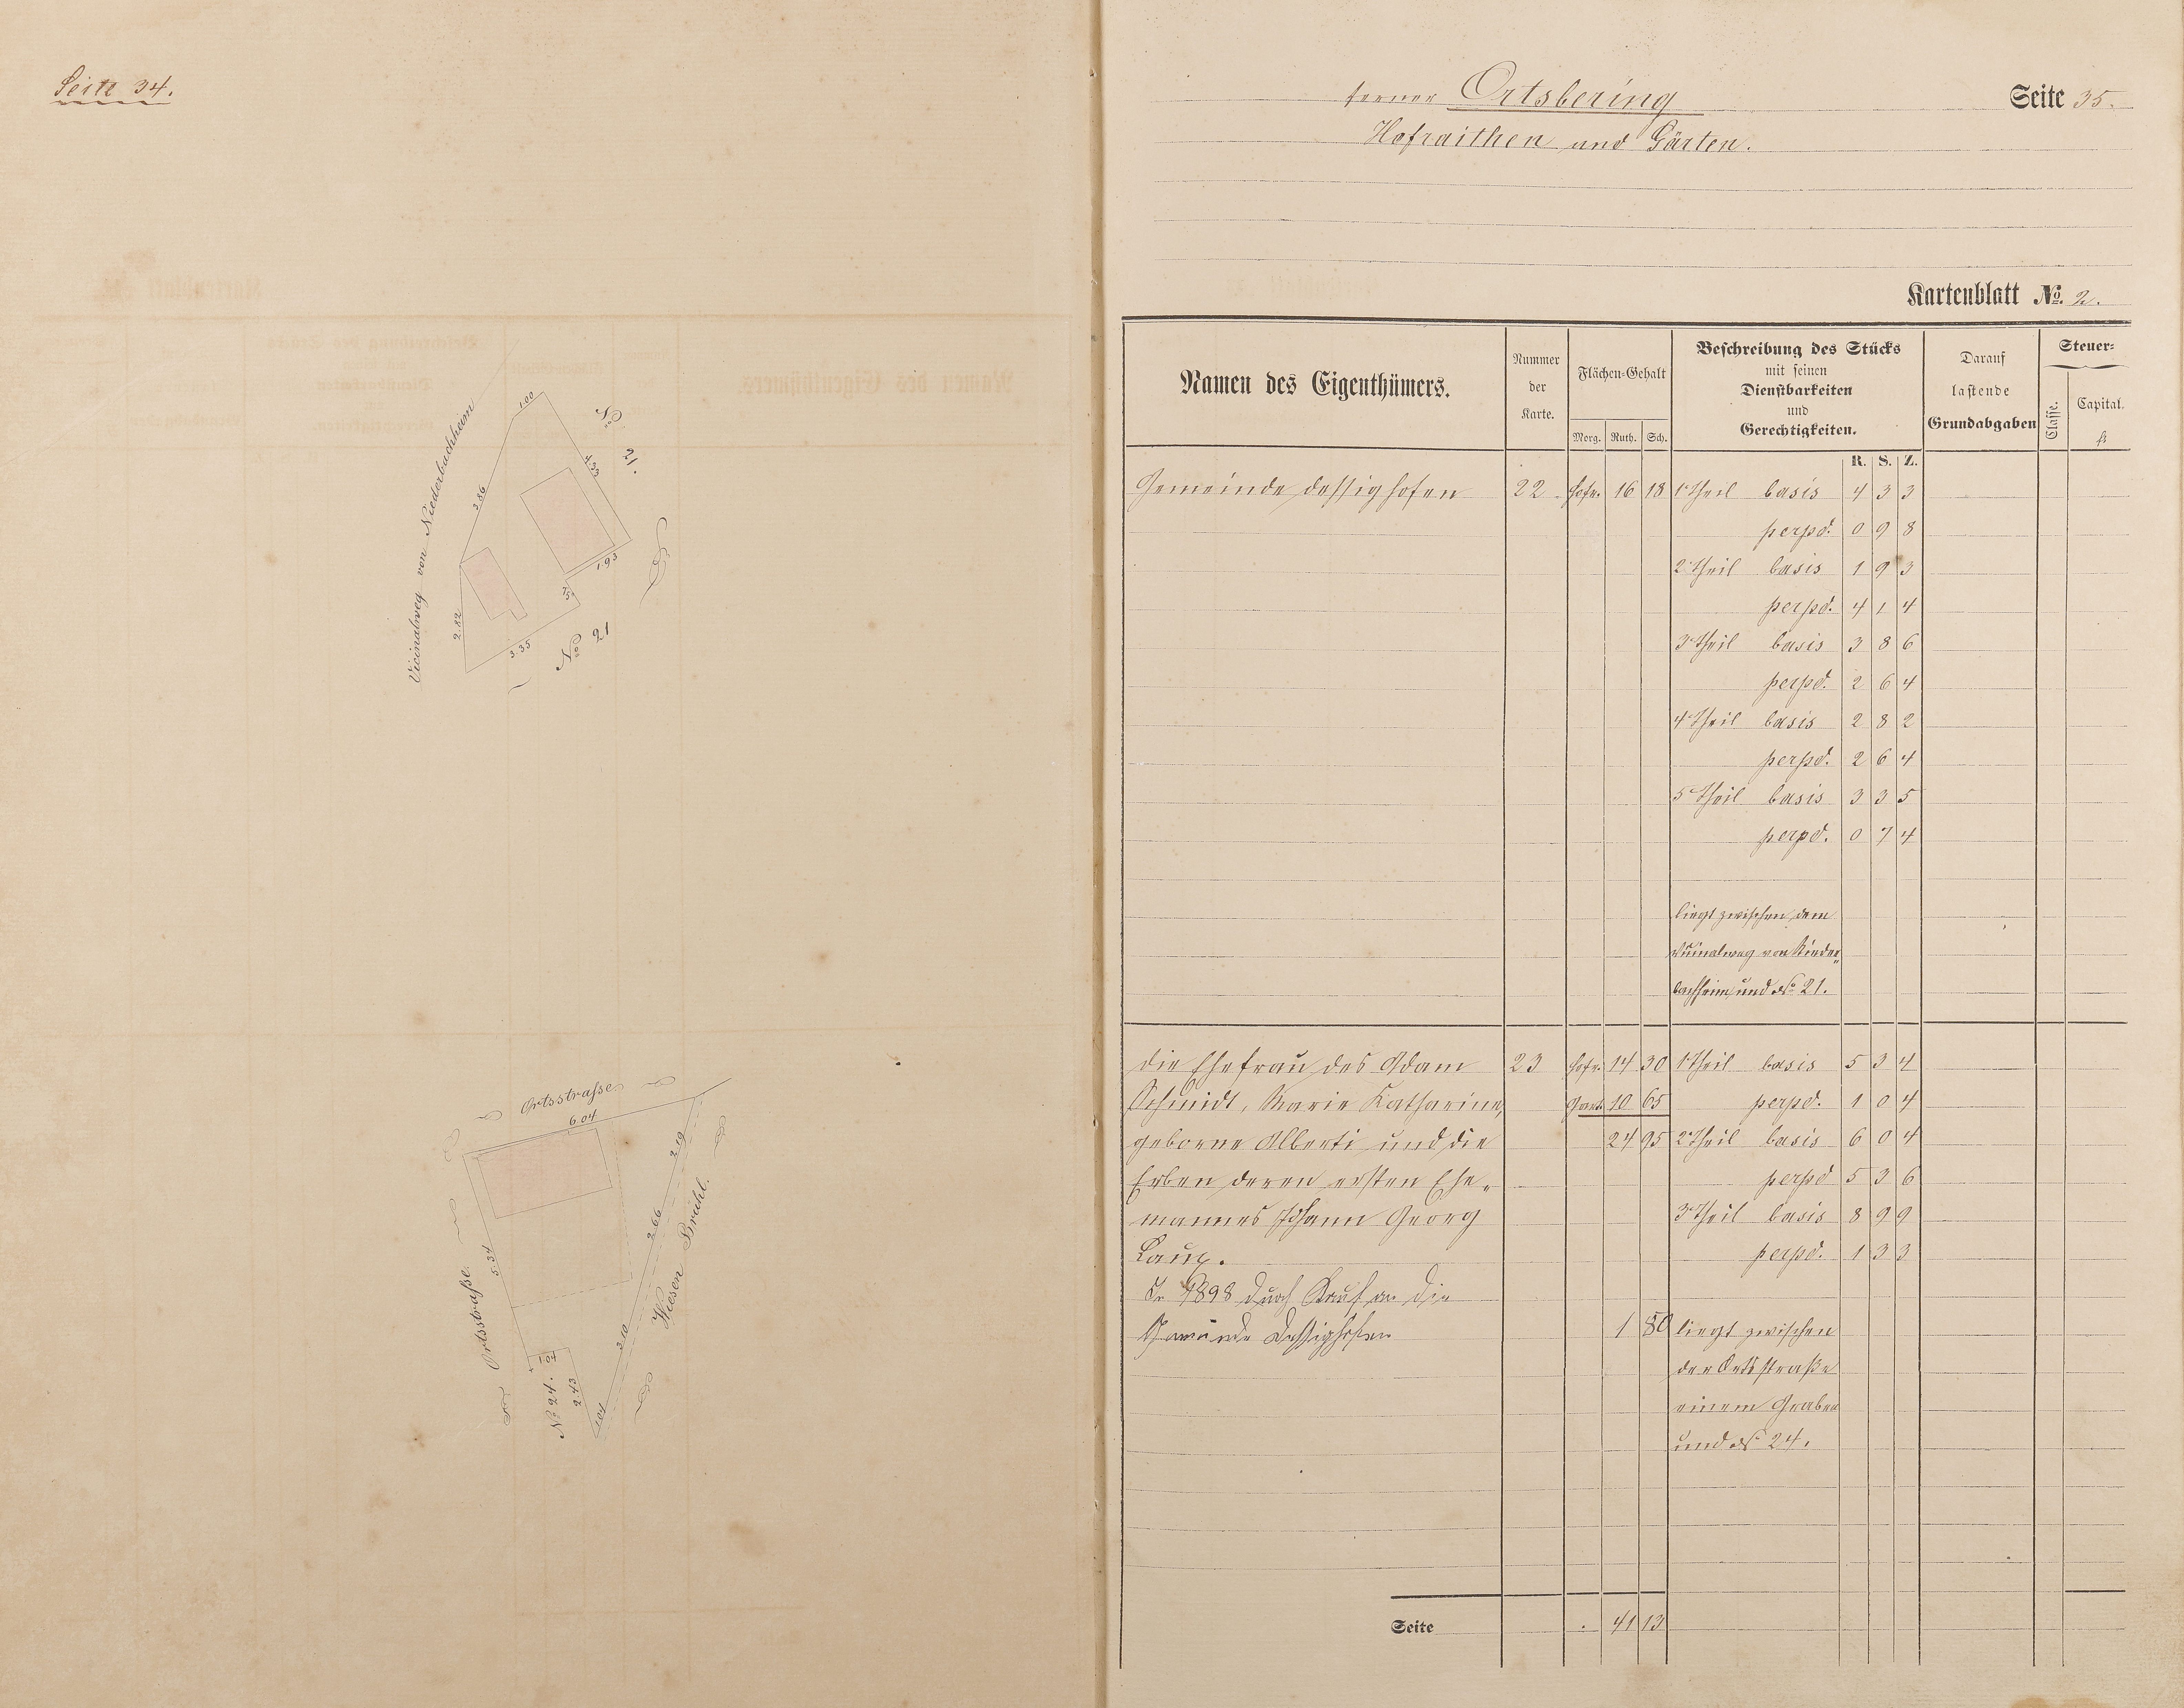 Seite 34.
Vicinalweg von Niederbachheim
1.00
3.86
4.33
No. 21.
1.93
75
2.82
3.35
No 21
Ortsstraße
6.04
2.19
2.66
Wiesen Brühl.
5.34
Ortsstraße.
3.10
1.04
No 24.
2.43
1.04
ferner Ortsbering
Seite 35.
Hofraithen und Gärten.
Kartenblatt No. 2.
Namen des Eigenthümers.
Nummer der Karte.
Flächen-Gehalt
Morg. Ruth. Sch.
Beschreibung des Stücks
mit seinen
Dienstbarkeiten
und
Gerechtigkeiten.
Darauf
lastende
Grundabgaben
Steuer-
Classe.
Capital.
fl
R. S. Z.
Gemeinde Dessighofen 22 Hofr. 16 18 1r Theil basis 4 3 3
perpd. 0 9 8
2r Theil basis 1 9 3
perpd. 4 1 4
3r Theil basis 3 8 6
perpd. 2 6 4
4r Theil basis 2 8 2
perpd. 2 6 4
5r Theil basis 3 3 5
perpd. 0 7 4
liegt zwischen dem
Vicinalweg von Nieder-
bachheim und No 21.
die Ehefrau des Adam 23 Hofr. 14 30 1r Theil basis 5 3 4
Schmidt, Marie Katharine, Gart. 10 65 perpd. 1 0 4
geborne Alberti und die 24 95 2r Theil basis 6 0 4
Erben deren ersten Ehe- perpd 5 3 6
mannes Johann Georg 3r Theil basis 8 9 9
Laux. perpd. 1 3 3
In 1898 durch Kauf an die
Gemeinde Dessighofen 1 80 liegt zwischen
der Ortsstraße
einem Graben
und No 24.
Seite . 41 13